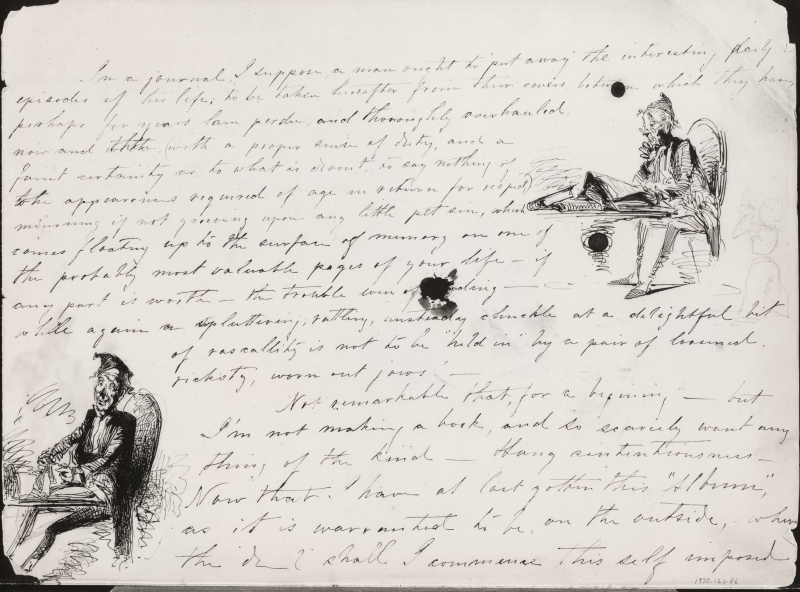 In a journal, I suppose a man ought to put away the interesting daily
episodes of his life; to be taken hereafter from their covers between which they have
perhaps for years lain perdu, and thoroughly overhauled
now and with a proper sense of duty, and a
faint certainty as to what is doesn't, to say nothing of
the appearances required of age in return for respect,
mourning if not groaning upon any little pet sin, which
comes floating up to the surface of memory on one of
the probably most valuable pages of your life – if
any part is worth – the trouble even of –
while again a spluttering, rattling, unsteady chuckle at a delightful bit
of rascallity is not to be "held in" by a pair of loosened
ricksty, worn out jaws. –
Not remarkable that, for a begining – but
I'm not making a book, and so scarcely want any
thing of the kind – Hang sententiousness –
Now that I have at last gotten this "Album",
as it is warranted to be, on the outside, when
the shall I commence this self imposed
1970.121.86